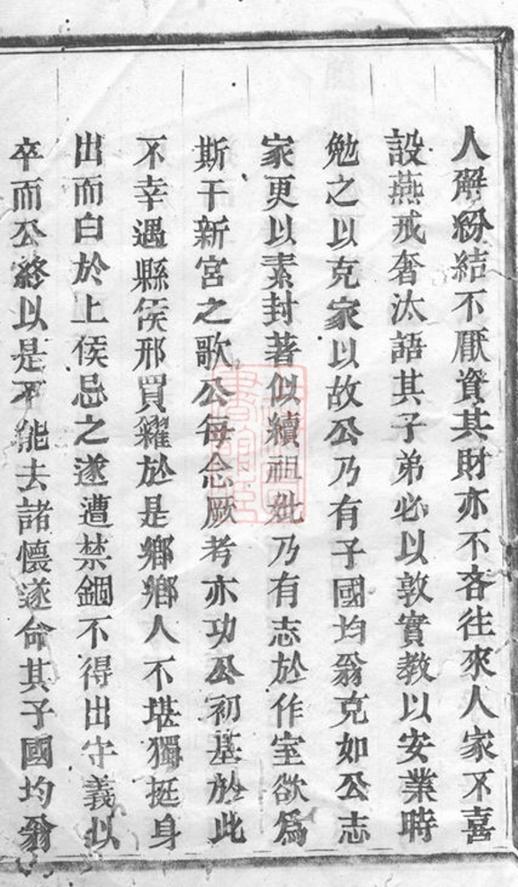 人解紛結不厭資其財亦不吝往來人家不喜
設燕戒奢汰語其子弟必以敦實教以安業時
勉之以克家以故公乃有子國均翁克如公志
家更以素封著似續祖妣乃有志於作室欲為
斯干新宮之歌公每念厥考亦功公初基於此
不幸遇縣侯邢買糴於是鄉鄉人不堪獨挺身
出而白於上侯忌之遂遭禁錮不得出守義以
卒而公終以是不能去諸懷遂命其子國均翁